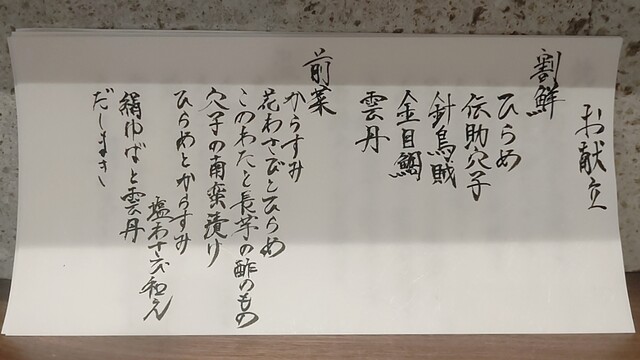 お献立
割鮮
ひらめ
伝助穴子
針烏賊
金目鯛
雲丹
前菜
からすみ
花わさびとひらめ
このわたと長芋の酢のもの
穴子の南蛮漬け
ひらめとからすみ
塩わさび和え
絹ゆばと雲丹
だしまき